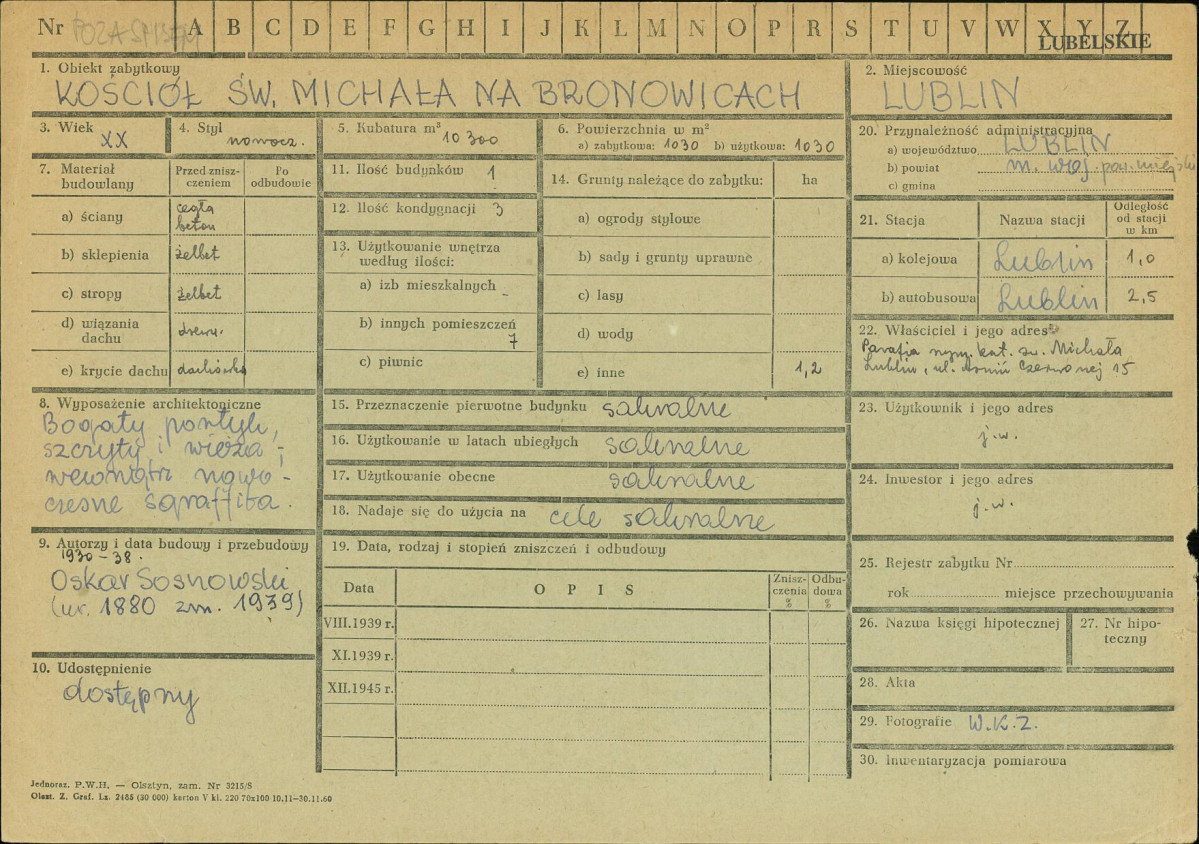 Nr POZA SPISEM A B C D E F G H I J K L M N O P R S T U V W X Y Z
LUBELSKIE
1. Obiekt zabytkowy
KOŚCIÓŁ ŚW. MICHAŁA NA BRONOWICACH
2. Miejscowość
LUBLIN
3. Wiek
XX
4. Styl
nowocz.
5. Kubatura m³
10 300
6. Powierzchnia w m²
a) zabytkowa: 1030 b) użytkowa: 1030
7. Materiał budowlany
Przed zniszczeniem
Po odbudowie
a) ściany
cegła
beton
b) sklepienia żelbet
c) stropy żelbet
d) wiązania dachu drewn.
e) krycie dachu dachówka
8. Wyposażenie architektoniczne
Bogaty portyk,
szczyty i wieża;
wewnątrz nowo-
czesne sgraffita.
9. Autorzy i data budowy i przebudowy
1930-38.
Oskar Sosnowski
(ur. 1880 zm. 1939)
10. Udostępnienie
dostępny
11. Ilość budynków 1
12. Ilość kondygnacji 3
13. Użytkowanie wnętrza
według ilości:
a) izb mieszkalnych
-
b) innych pomieszczeń
7
c) piwnic
14. Grunty należące do zabytku: ha
a) ogrody stylowe
b) sady i grunty uprawne
c) lasy
d) wody
e) inne 1,2
15. Przeznaczenie pierwotne budynku sakralne
16. Użytkowanie w latach ubiegłych sakralne
17. Użytkowanie obecne sakralne
18. Nadaje się do użycia na cele sakralne
19. Data, rodzaj i stopień zniszczeń i odbudowy
Data
OPIS
Zniszczenia %
Odbudowa %
VIII.1939 r.
XI.1939 r.
XII.1945 r.
20. Przynależność administracyjna
a) województwo LUBLIN
b) powiat m. woj. pow. miejski
c) gmina
21. Stacja
Nazwa stacji
Odległość
od stacji
w km
a) kolejowa Lublin 1,0
b) autobusowa Lublin 2,5
22. Właściciel i jego adres
Parafia rzym. kat. św. Michała
Lublin, ul. Armii Czerwonej 15
23. Użytkownik i jego adres
j.w.
24. Inwestor i jego adres
j.w.
25. Rejestr zabytku Nr
rok miejsce przechowywania
26. Nazwa księgi hipotecznej
27. Nr hipo-
teczny
28. Akta
29. Fotografie W.K.Z.
30. Inwentaryzacja pomiarowa
Jednoraz. P.W.H. — Olsztyn, zam. Nr 3215/S
Olszt. Z. Graf. Lz. 2485 (30 000) karton V kl. 220 70x100 10.11-30.11.60